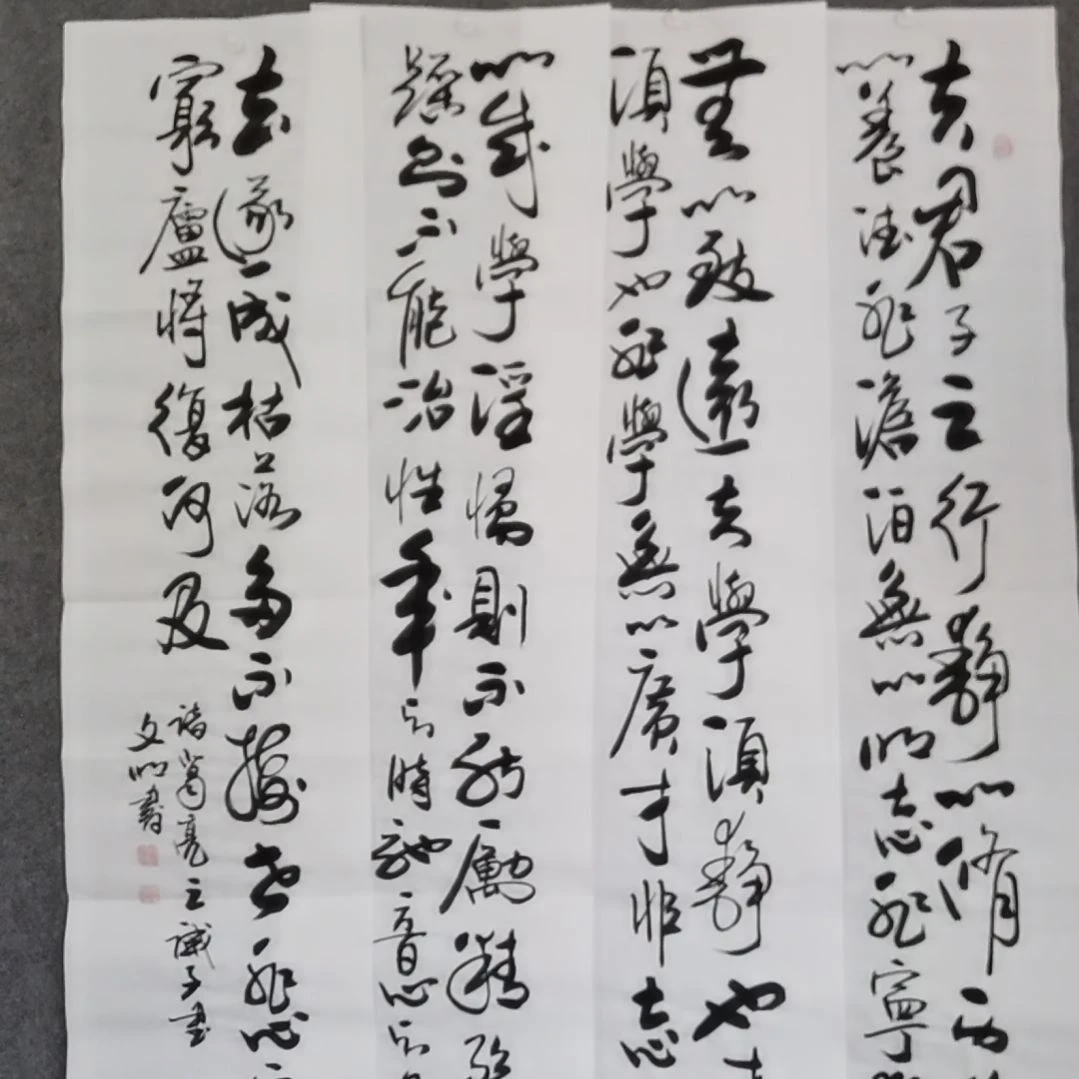 夫君子之行靜以脩身
以養德非澹泊無以明志非寧
無以致遠夫學須靜也
須學也非學無以廣才非志
以成學淫慢則不能勵精
躁則不能冶性年与時馳意与
去遂成枯落多不接世悲
窮廬將復何及
諸葛亮之誡子書
文明書